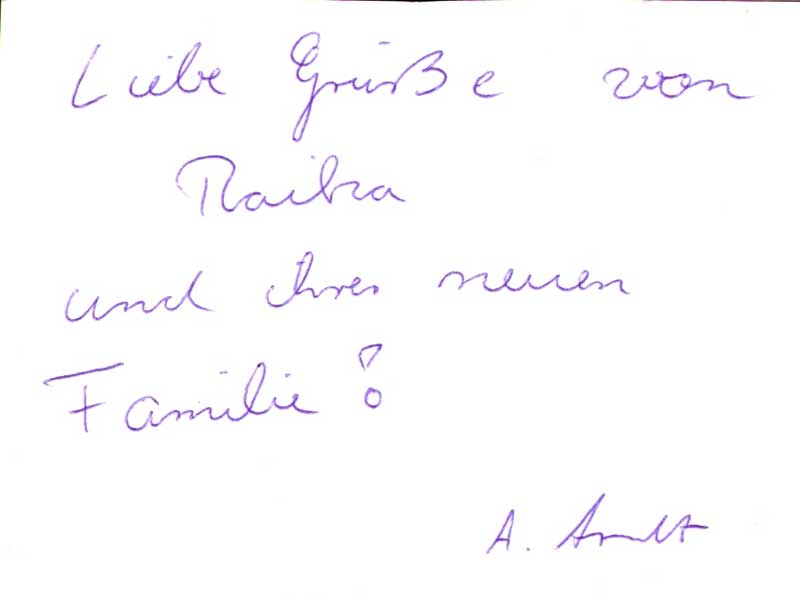 Liebe Grüße von
Raika
und ihrer neuen
Familie!
A. Arndt